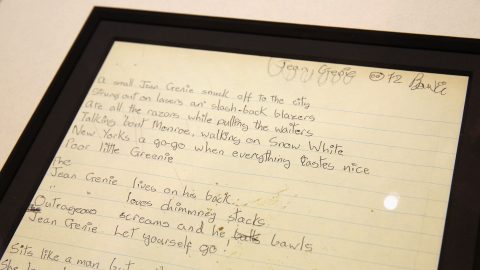 Jean Genie © 72 Bowie
A small Jean Genie snuck off to the city
Strung out on lasers an' slash-back blazers
Ate all the razors while pulling the waiters
Talking bout Monroe, walking on Snow White
New Yorks a go-go when everything tastes nice
Poor little Greenie
The
Jean Genie lives on his back
" " loves chimmney stacks
Outrageous screams and he bawls
Jean Genie Let yourself go!
Sits like a man but
She